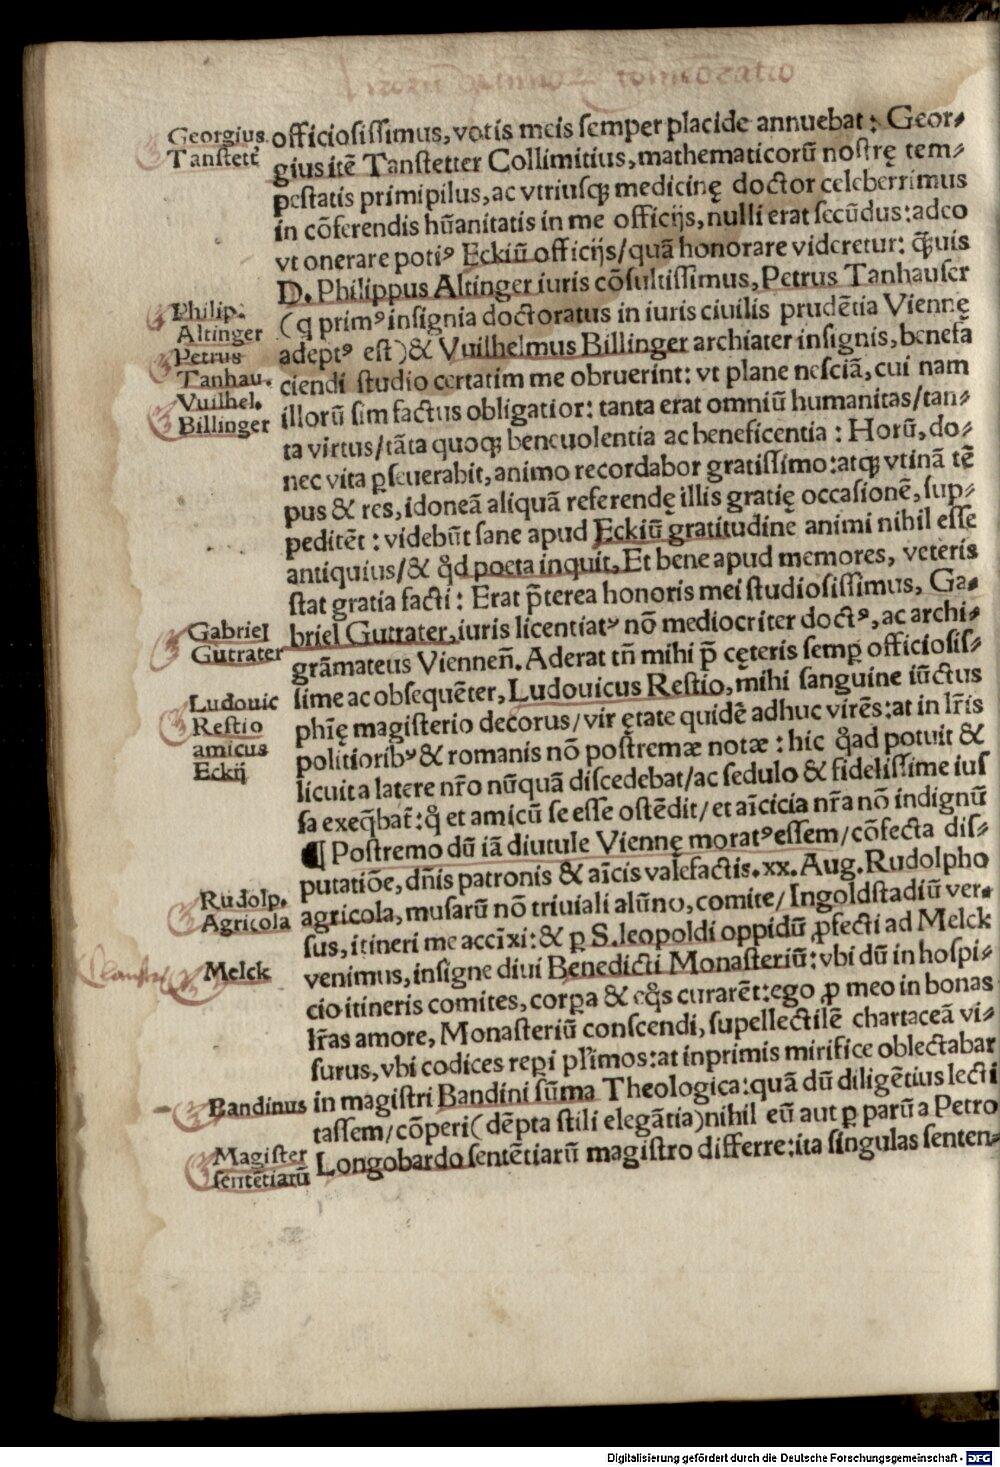 virorum
Georgius
Tanstett̃
officiosissimus, votis meis semper placide annuebat: Geor-
gius itẽ Tanstetter Collimitius, mathematicorũ nostrę tem-
pestatis primipilus, ac vtriusq; medicinę doctor celeberrimus
in cõferendis hũanitatis in me officijs, nulli erat secũdus: adeo
vt onerare potiꝰ Eckiũ officijs/quã honorare videretur: q̃uis
D. Philippus Altinger iuris cõsultissimus, Petrus Tanhauser
Philip.
Altinger
(q primꝰ insignia doctoratus in iuris ciuilis prudẽtia Viennę
Petrus
Tanhau.
adeptꝰ est) & Vuilhelmus Billinger archiater insignis, benefa
ciendi studio certatim me obruerint: vt plane nesciã, cui nam
Vuilhel.
Billinger
illorũ sim factus obligatior: tanta erat omniũ humanitas/tan-
ta virtus/tãta quoq; beneuolentia ac beneficentia: Horũ, do-
nec vita ꝑseuerabit, animo recordabor gratissimo: atq; vtinã tẽ
pus & res, idoneã aliquã referendę illis gratię occasionẽ, sup-
peditẽt: videbũt sane apud Eckiũ gratitudine animi nihil esse
antiquius/& q̊d poeta inquit, Et bene apud memores, veteris
stat gratia facti: Erat p̃terea honoris mei studiosissimus, Ga-
Gabriel
Gutrater
briel Gutrater, iuris licentiatꝰ nõ mediocriter doctꝰ, ac archi-
grãmateus Vienneñ. Aderat tñ mihi p̃ cęteris semꝑ officiosis-
Ludouic
Restio
amicus
Eckij
sime ac obsequẽter, Ludouicus Restio, mihi sanguine iũctus
phię̃ magisterio decorus/vir ętate quidẽ adhuc virẽs: at in lr̃is
politioribꝰ & romanis nõ postremæ notæ: hic q̊ad potuit &
licuit a latere nr̃o nũquã discedebat/ac sedulo & fidelissime ius
sa exeq̃bat̃: q̊ et amicũ se esse ostẽdit/et aĩcicia nr̃a nõ indignũ
¶ Postremo dũ iã diutule Viennę moratꝰ essem/cõfecta dis-
putatiõe, dñis patronis & aĩcis valefactis. xx. Aug. Rudolpho
Rudolp.
Agricola
agricola, musarũ nõ triuiali alũno, comite/Ingoldstadiũ ver-
sus, itineri me accĩxi: & ꝑ S. leopoldi oppidũ ꝓfecti ad Melck
Melck
venimus, insigne diui Benedicti Monasteriũ: vbi dũ in hospi-
cio itineris comites, corꝑa & eq̊s curarẽt: ego ꝓ meo in bonas
lr̃as amore, Monasteriũ conscendi, supellectilẽ chartaceã vi-
surus, vbi codices reꝑi pl̃imos: at inprimis mirifice oblectabar
Bandinus
in magistri Bandini sũma Theologica: quã dũ diligẽtius lecti
tassem/cõperi (dẽpta stili elegãtia) nihil eũ aut ꝑ parũ a Petro
Magister
sentẽtiarũ
Longobardo sentẽtiarũ magistro differre: ita singulas senten-
Digitalisierung gefördert durch die Deutsche Forschungsgemeinschaft - DFG